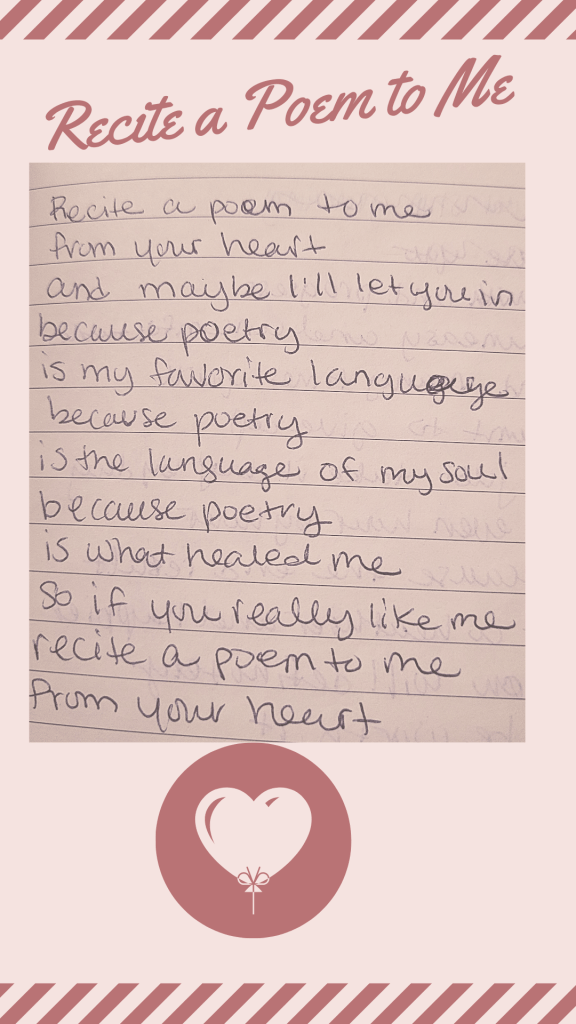 Recite a Poem to Me
Recite a poem to me
from your heart
and maybe I'll let you in
because poetry
is my favorite language
because poetry
is the language of my soul
because poetry
is what healed me
So if you really like me
recite a poem to me
from your heart